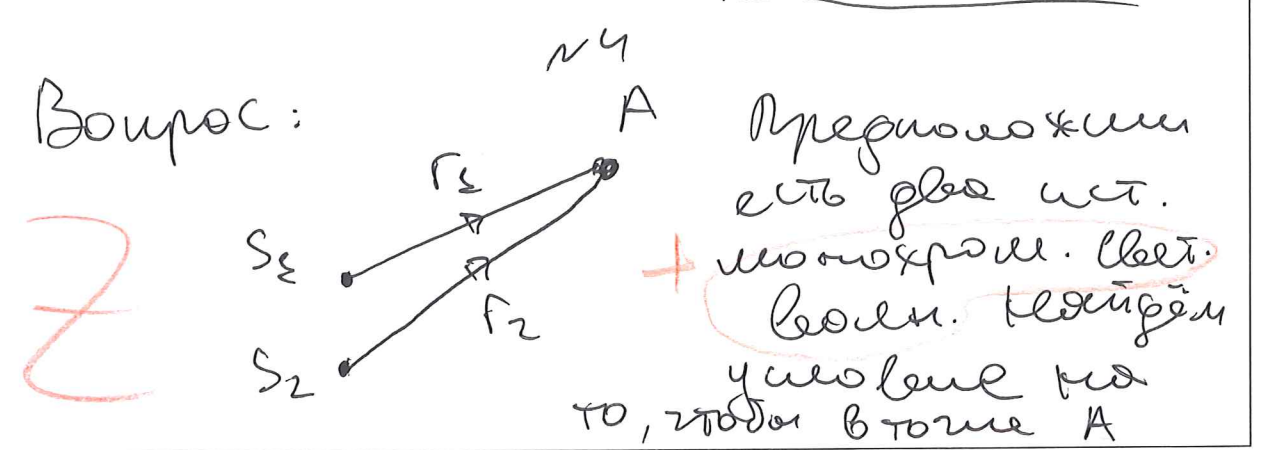 №4
Вопрос:
A
r₁
S₁
r₂
S₂
Z
+
Предположим
есть два ист.
монохром. свет.
волн. Найдём
условие на
то, чтобы в точке A